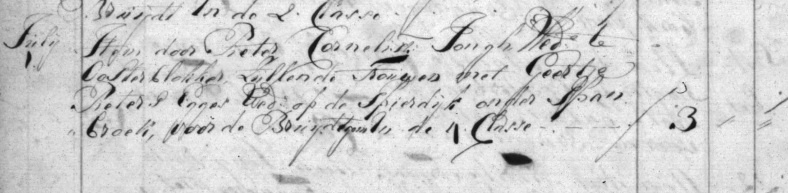 Bruijdt In de 2. Classe
July Item door Pieter Cornelisz Jongh Wed.e te
1 Oosterblokker, zullende trouwen met Geertje
Pieters Egges Wed: op de Spierdijk onder Span
broek, voor de Bruijdegom In de 4 Classe - - - - 3 " "